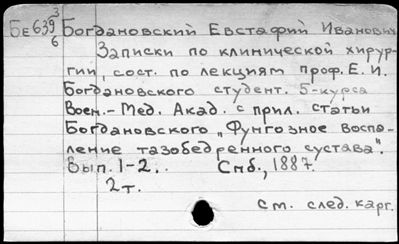 Бе 639 3/6 Богдановский Евстафий Иванович
Записки по клинической хирур-
гии, сост. по лекциям проф. Е. И.
Богдановского студент. 5-курса
Воен.-Мед. Акад. с прил. статьи
Богдановского „Фунгозное воспа-
ление тазобедренного сустава".
Вып. 1-2. Спб., 1887.
2 т.
см. след. карт.